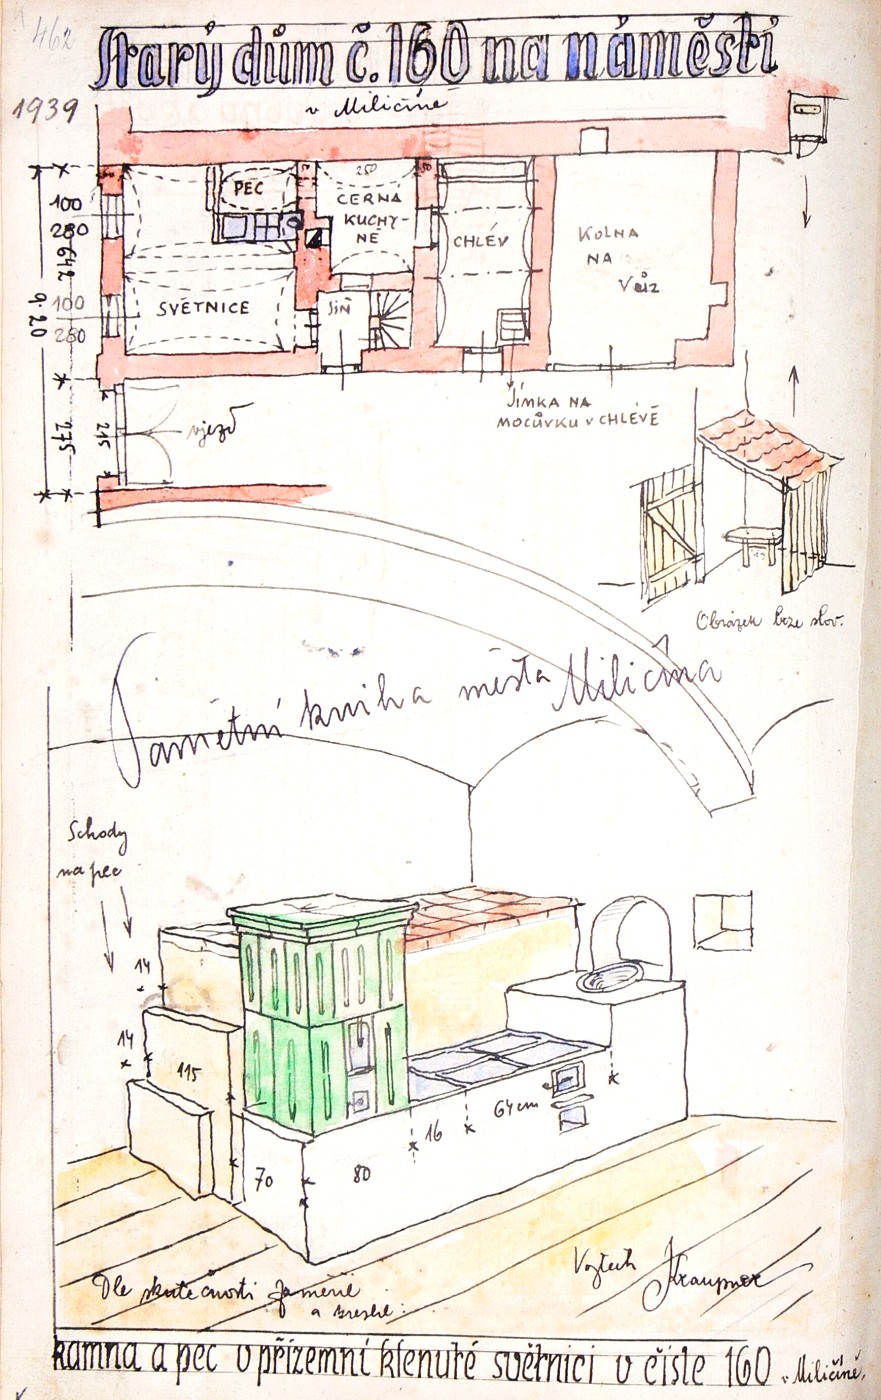 462
Starý dům č. 160 na náměstí
1939
v Miličíně
PEC
250
ČERNÁ
KUCHY-
NĚ
CHLÉV
KOLNA
NA
VŮZ
SVĚTNICE
SÍŇ
100
280
642
9.20
100
280
275
215
vjezd
JÍMKA NA
MOČŮVKU V CHLÉVĚ
Obrázek beze slov.
Pamětní kniha města Miličína
Schody
na pec
14
14
115
70
80
16
64cm
Dle skutečnosti zaměřil
a kreslil:
Vojtěch Kraupner
kamna a pec v přízemní klenuté světnici v čísle 160 v Miličíně.